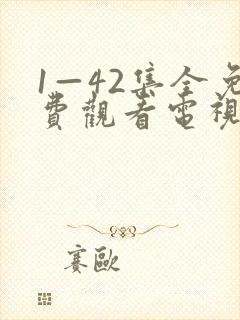 1—42集全免
費觀看電視
賽歐